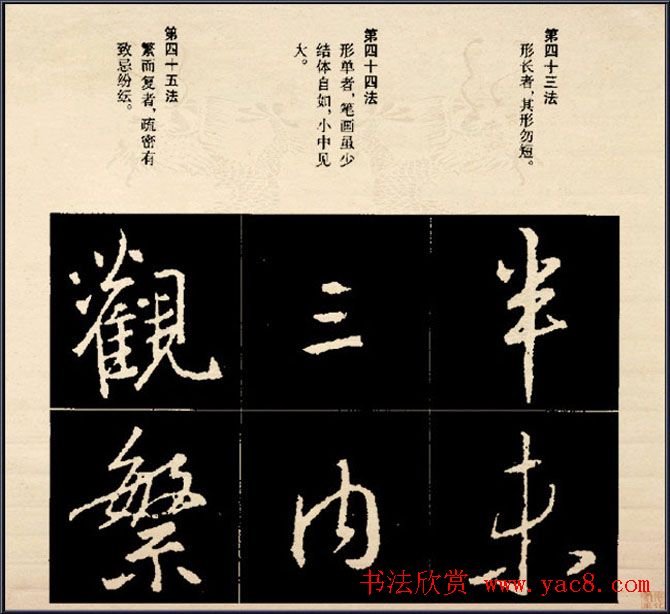 第四十三法
形长者，其形勿短。
第四十四法
形单者，笔画虽少
结体自如，小中见
大。
第四十五法
繁而复者，疏密有
致忌纷纭。
半
未
三
内
觀
繁
书法欣赏-www.yac8.com